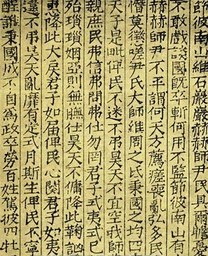 彼南山維石巖巖赫赫師尹民具爾瞻憂
不敢戲談國既卒斬何用不監節彼南山有
赫赫師尹不平謂何天方薦瘥喪亂弘多民
憯莫懲嗟尹氏大師維周之氐秉國之均四
天子是毗俾民不迷不弔昊天不宜空我師
親庶民弗信弗問弗仕勿罔君子式夷式已
殆瑣瑣姻亞則無膴仕昊天不傭降此鞠訩
降此大戾君子如屆俾民心闋君子如夷
違不弔昊天亂靡有定式月斯生俾民不寧
誰秉國成不自為政卒勞百姓駕彼四牡